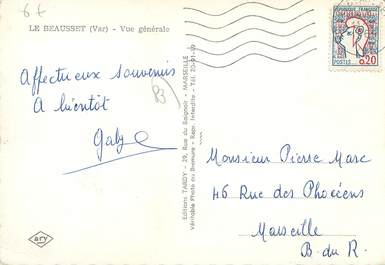 6f
LE BEAUSSET (Var) - Vue générale
Affectueux souvenirs
A bientôt
Gaby
83
Editions TARDY - 29, Rue du Baignoir - MARSEILLE - Tél. 20-91-09
Véritable Photo au Bromure - Repr. Interdite
REPUBLIQUE FRANÇAISE
POSTES 0,20
Monsieur Pierre Marc
46 Rue des Phocéens
Marseille
B. du R.
ary